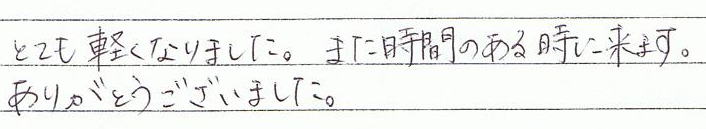 とても軽くなりました。また時間のある時に来ます。
ありがとうございました。